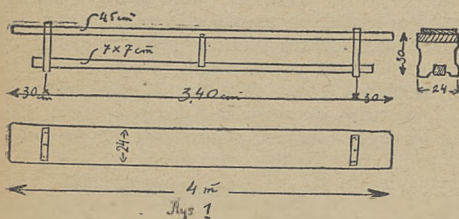 45cm
7×7 cm
30
30
3,40 cm
30
24
24
4 m
Rys 1